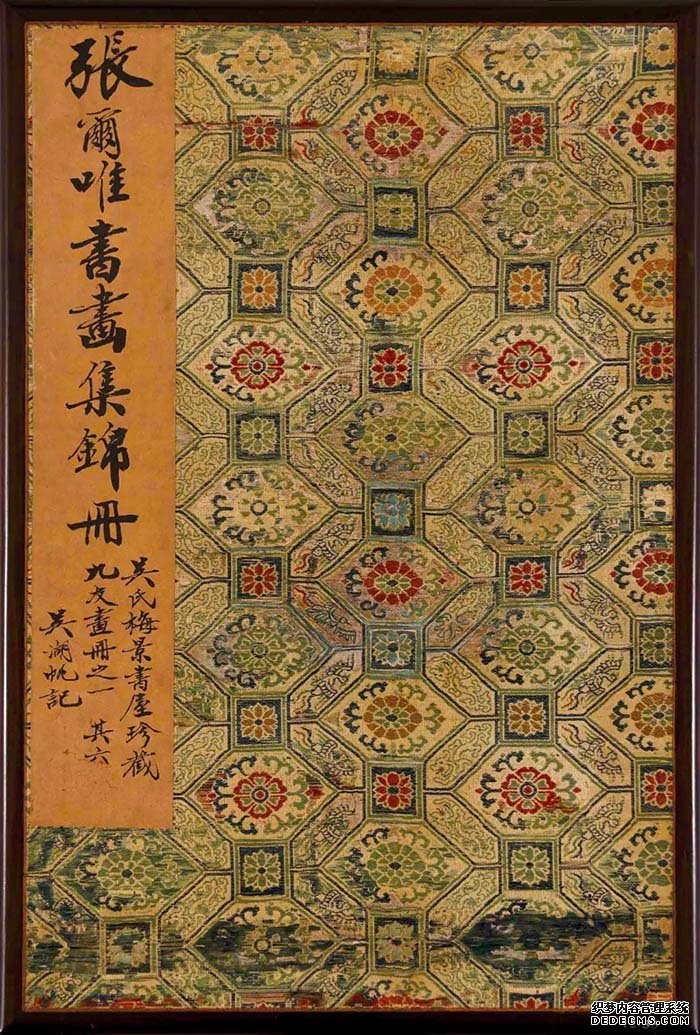 張爾唯書畫集錦冊
吳氏梅景書屋珍藏
九友畫冊之一 其六
吳湖帆記
织梦内容管理系统
DEDECMS.COM